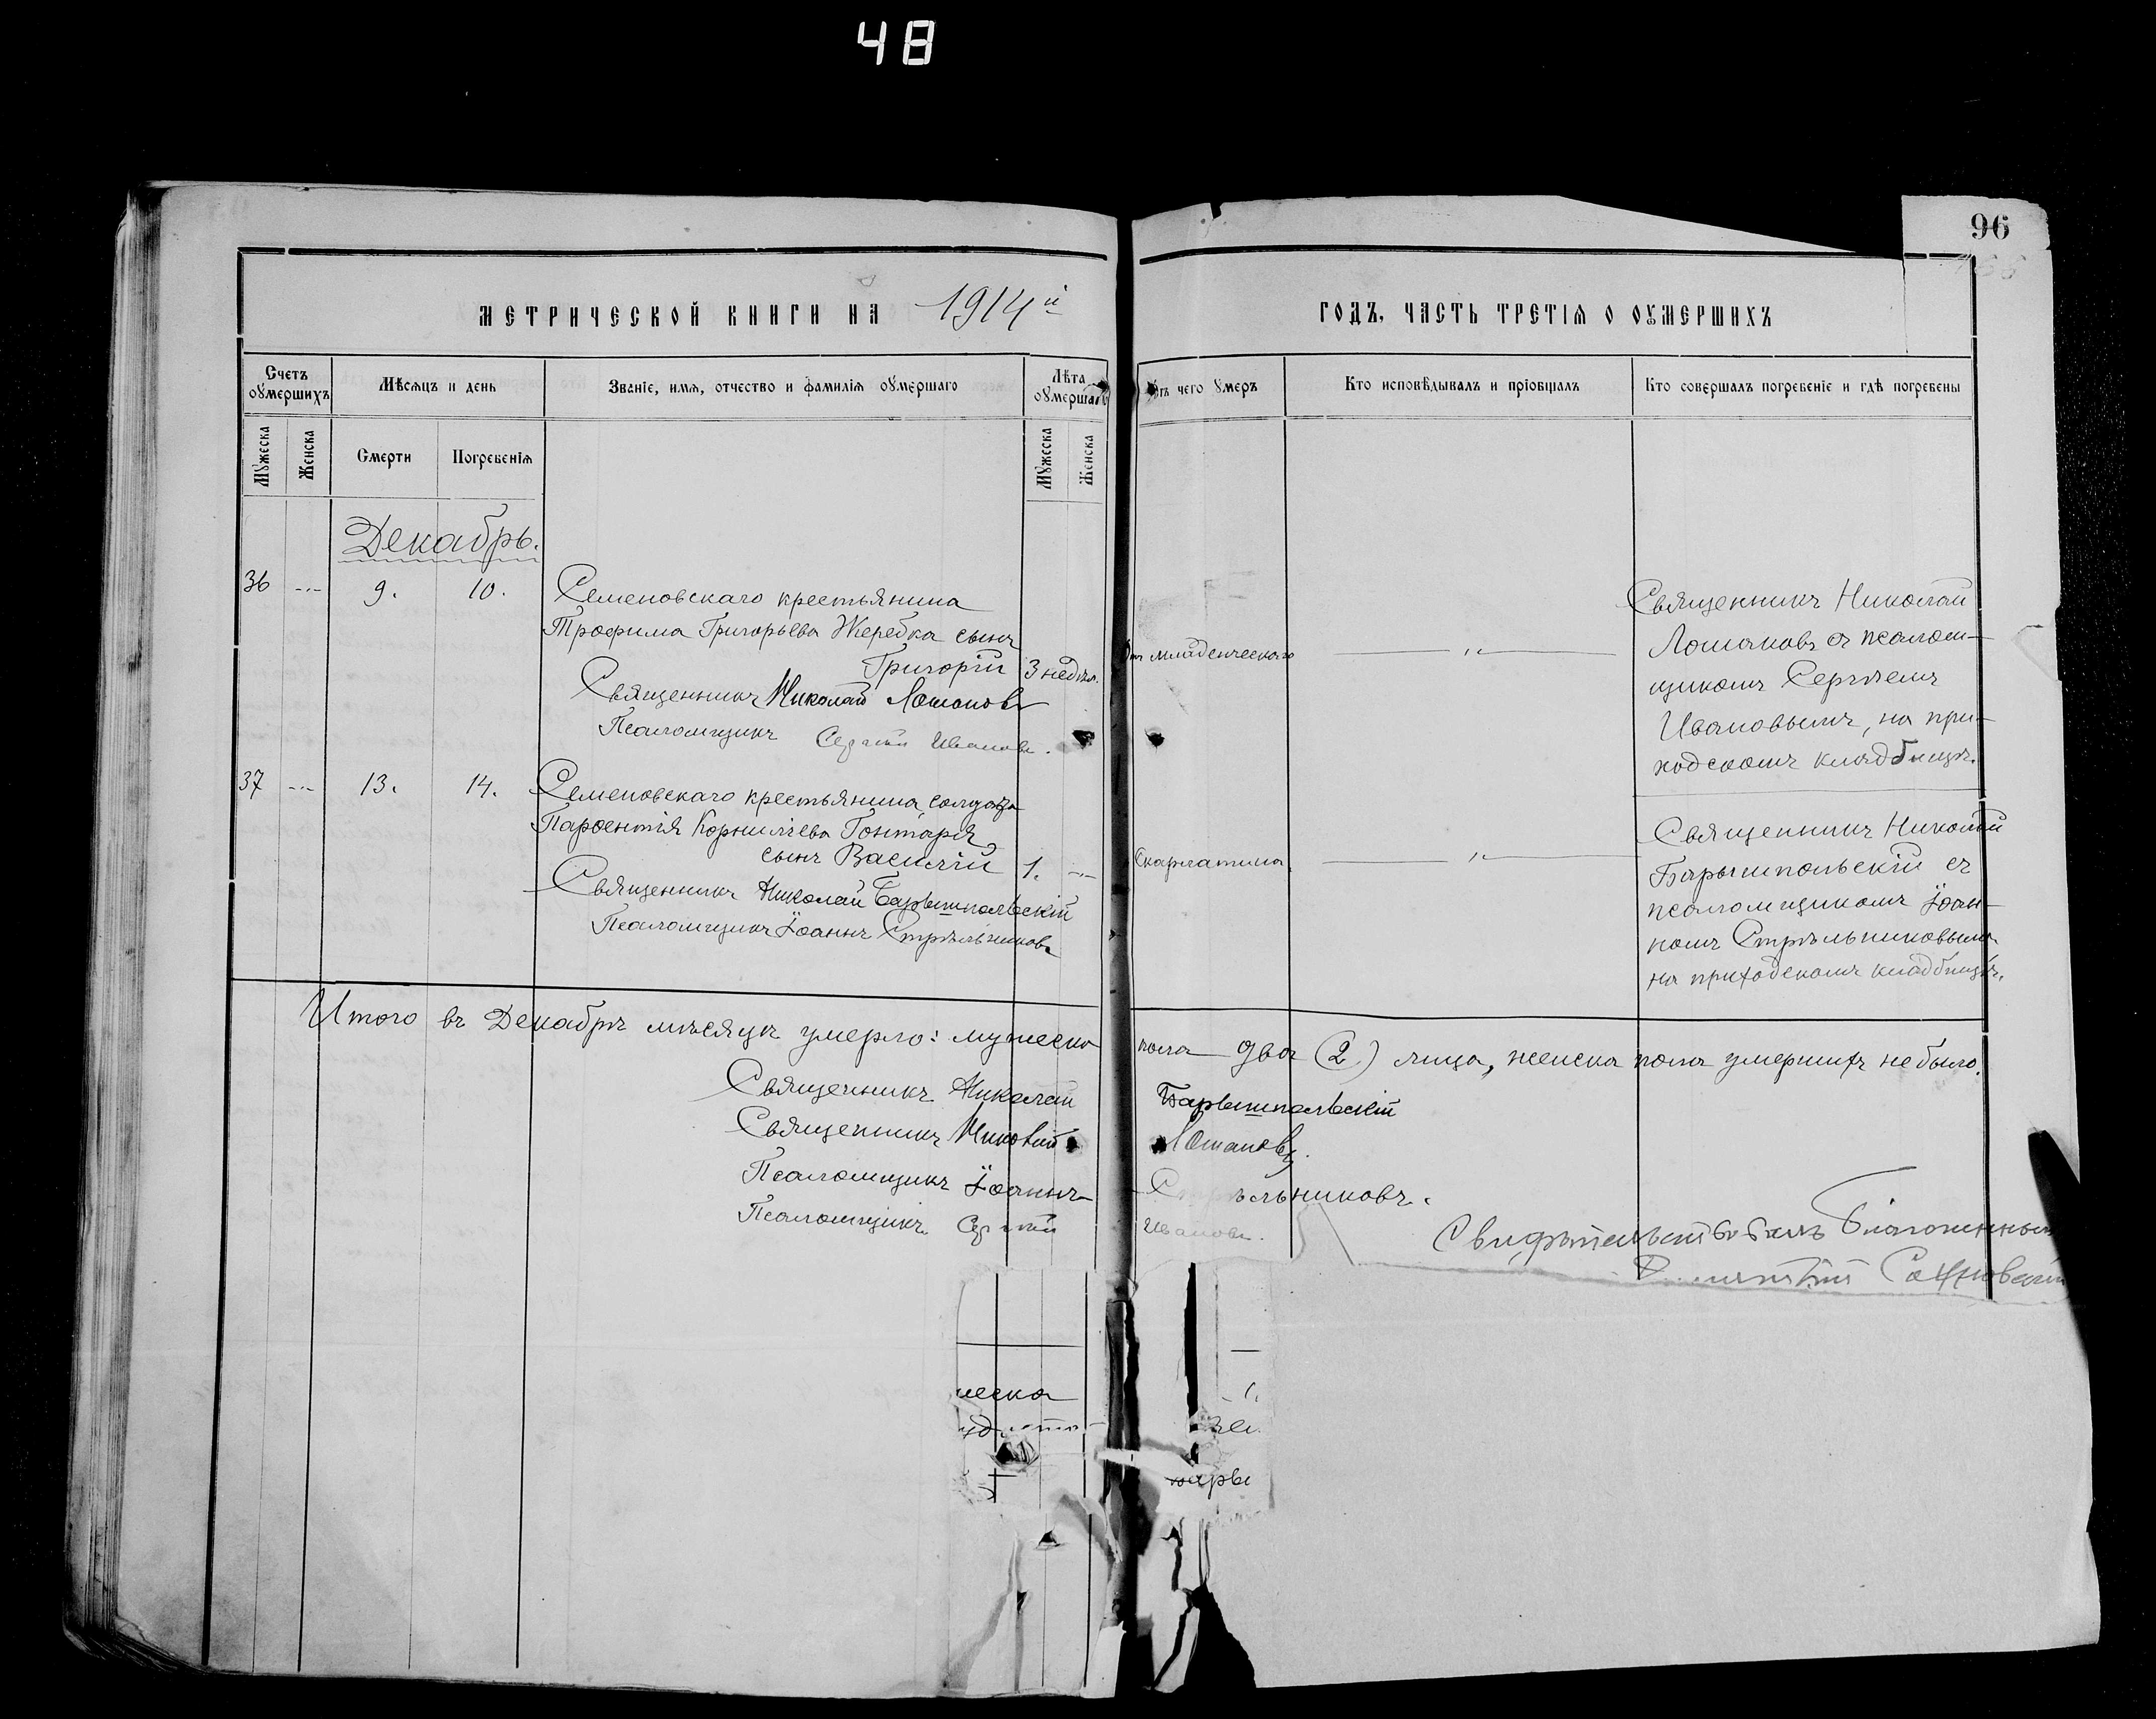 48
96
МЕТРИЧЕСКОЙ КНИГИ НА 1914й
ГОДЪ, ЧАСТЬ ТРЕТІЯ О ОУМЕРШИХЪ
Счетъ оумершихъ
Мѣсяцъ и день
Званіе, имя, отчество и фамилія оумершаго
Лѣта оумершаго
Отъ чего умеръ
Кто исповѣдывалъ и пріобщалъ
Кто совершалъ погребеніе и гдѣ погребены
Мужеска
Женска
Смерти
Погребенія
Мужеска
Женска
Декабрь.
36 9. 10. Семеновскаго крестьянина
Трофима Григорьева Жеребка сынъ
Григорій 3 недѣл.
Священникъ Николай Лошаковъ
Псаломщикъ Сергѣй Ивановъ.
От младенческаго
Священникъ Николай
Лошаковъ съ псалом-
щикомъ Сергѣемъ
Ивановымъ, на при-
ходскомъ кладбищѣ.
37 13. 14. Семеновскаго крестьянина, солдата
Парѳентія Корниліева Гонтаря
сынъ Василій 1.
Священникъ Николай Барышпольскій
Псаломщикъ Іоаннъ Стрѣльниковъ
Скарлатина
Священникъ Николай
Барышпольскій съ
псаломщикомъ Іоан-
номъ Стрѣльниковымъ
на приходскомъ кладбищѣ.
Итого въ Декабрѣ мѣсяцѣ умерло: мужеска пола два (2) лица, женска пола умершихъ не было.
Священникъ Николай Барышпольскій
Священникъ Николай Лошаковъ.
Псаломщикъ Іоаннъ Стрѣльниковъ.
Псаломщикъ Сергѣй Ивановъ.
Свидѣтельствовалъ Благочинный
жеска